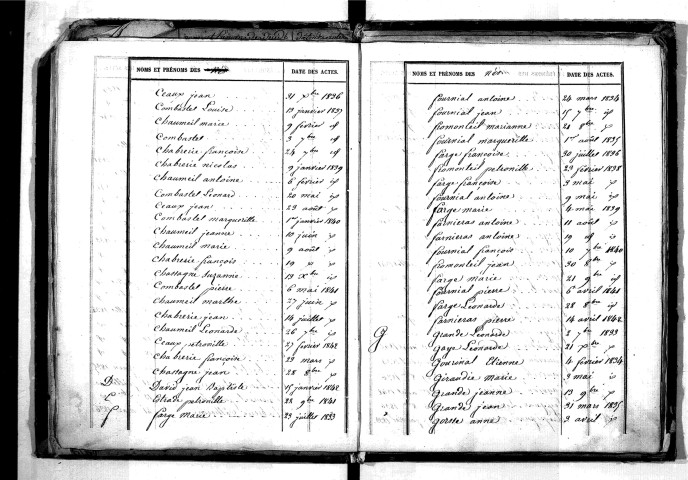 NOMS ET PRÉNOMS DES DATE DES ACTES.
Ceaux jean 31 Xbre 1836
Combastet Louise 13 janvier 1837
Chaumeil marie 9 février
Combastet 3 7bre
Chabrerie françoise 24 7bre
Chabrerie nicolas 9 janvier 1839
Chaumeil antoine 6 février
Combastet Léonard 20 mai
Ceaux jean 23 août
Combastet marguerite 1er janvier 1840
Chaumeil jeanne 10 juin
Chaumeil marie 9 août
Chabrerie françois 19
Chastagne suzanne 13 Xbre
Combastet pierre 6 mai 1841
Chaumeil marthe 27 juin
Chabrerie jean 14 juillet
Chaumeil Léonarde 26 7bre
Ceaux petronille 27 février 1842
Chabrerie françoise 23 mars
Chastagne jean 28 8bre
D David jean Baptiste 15 janvier 1842
E Estrade petronille 28 9bre 1841
F farge marie 23 juillet 1833
NOMS ET PRÉNOMS DES nés DATE DES ACTES.
fournial antoine 24 mars 1834
fournial jean 15 7bre
fromonteil marianne 21 8bre
fournial marguerite 1er août 1835
farge françoise 30 juillet 1836
fromonteil petronille 23 février 1838
farge françoise 3 mai
fournial antoine 9 mai
farge marie 4 mai 1839
farnieras antoine 11 août
farnieras antoine 19
fournial françois 10 Xbre 1840
fromonteil jean 30 8bre
farge marie 21 9bre
fournial pierre 6 avril 1841
farge Léonarde 28 8bre
farnieras pierre 14 avril 1842
G Grande Léonarde 2 7bre 1833
Gaye Léonarde 21 Xbre
Gourinal Etienne 4 février 1834
Girandie Marie 3 mai
Grande jeanne 13 9bre
Grande jean 31 mars 1835
Gorsse anne 3 avril